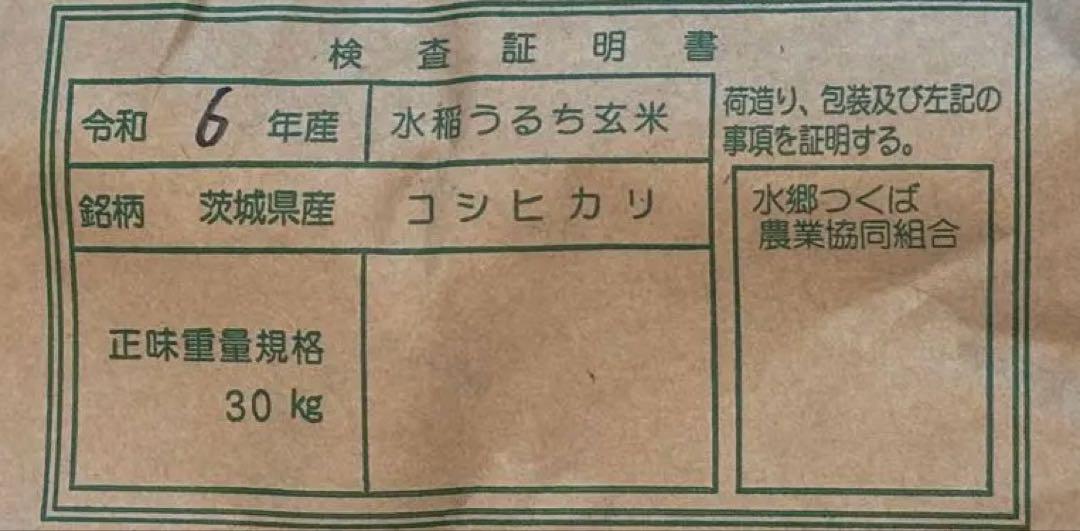 検査証明書
令和 6 年産 水稲うるち玄米
銘柄 茨城県産 コシヒカリ
正味重量規格
30 kg
荷造り、包装及び左記の
事項を証明する。
水郷つくば
農業協同組合